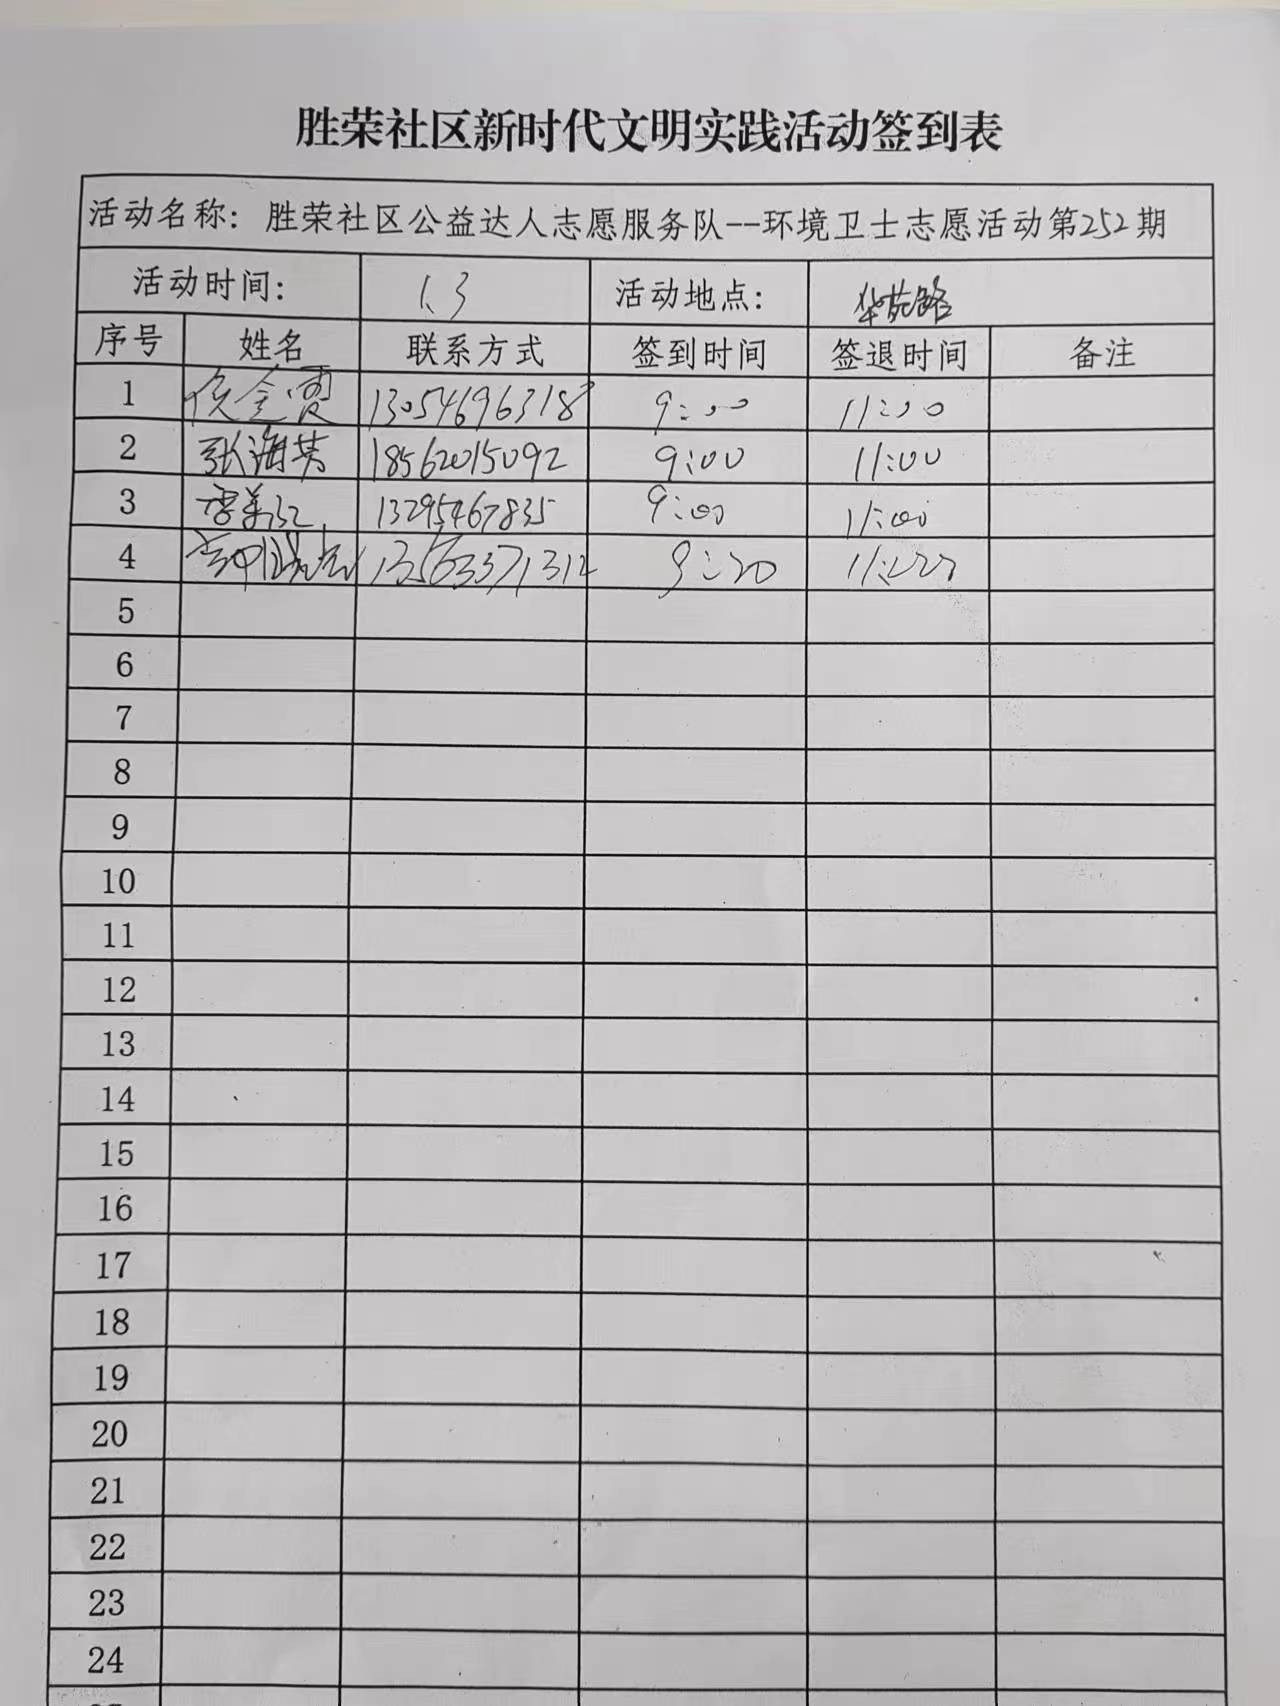 胜荣社区新时代文明实践活动签到表
活动名称：胜荣社区公益达人志愿服务队--环境卫士志愿活动第252期
活动时间： 1.3 活动地点： 华苑路
序号 姓名 联系方式 签到时间 签退时间 备注
1 侯金霞 13054696318 9:00 11:00
2 张海英 18562015092 9:00 11:00
3 李美江 13295467835 9:00 11:00
4 13563371312 9:20 11:22
5
6
7
8
9
10
11
12
13
14
15
16
17
18
19
20
21
22
23
24